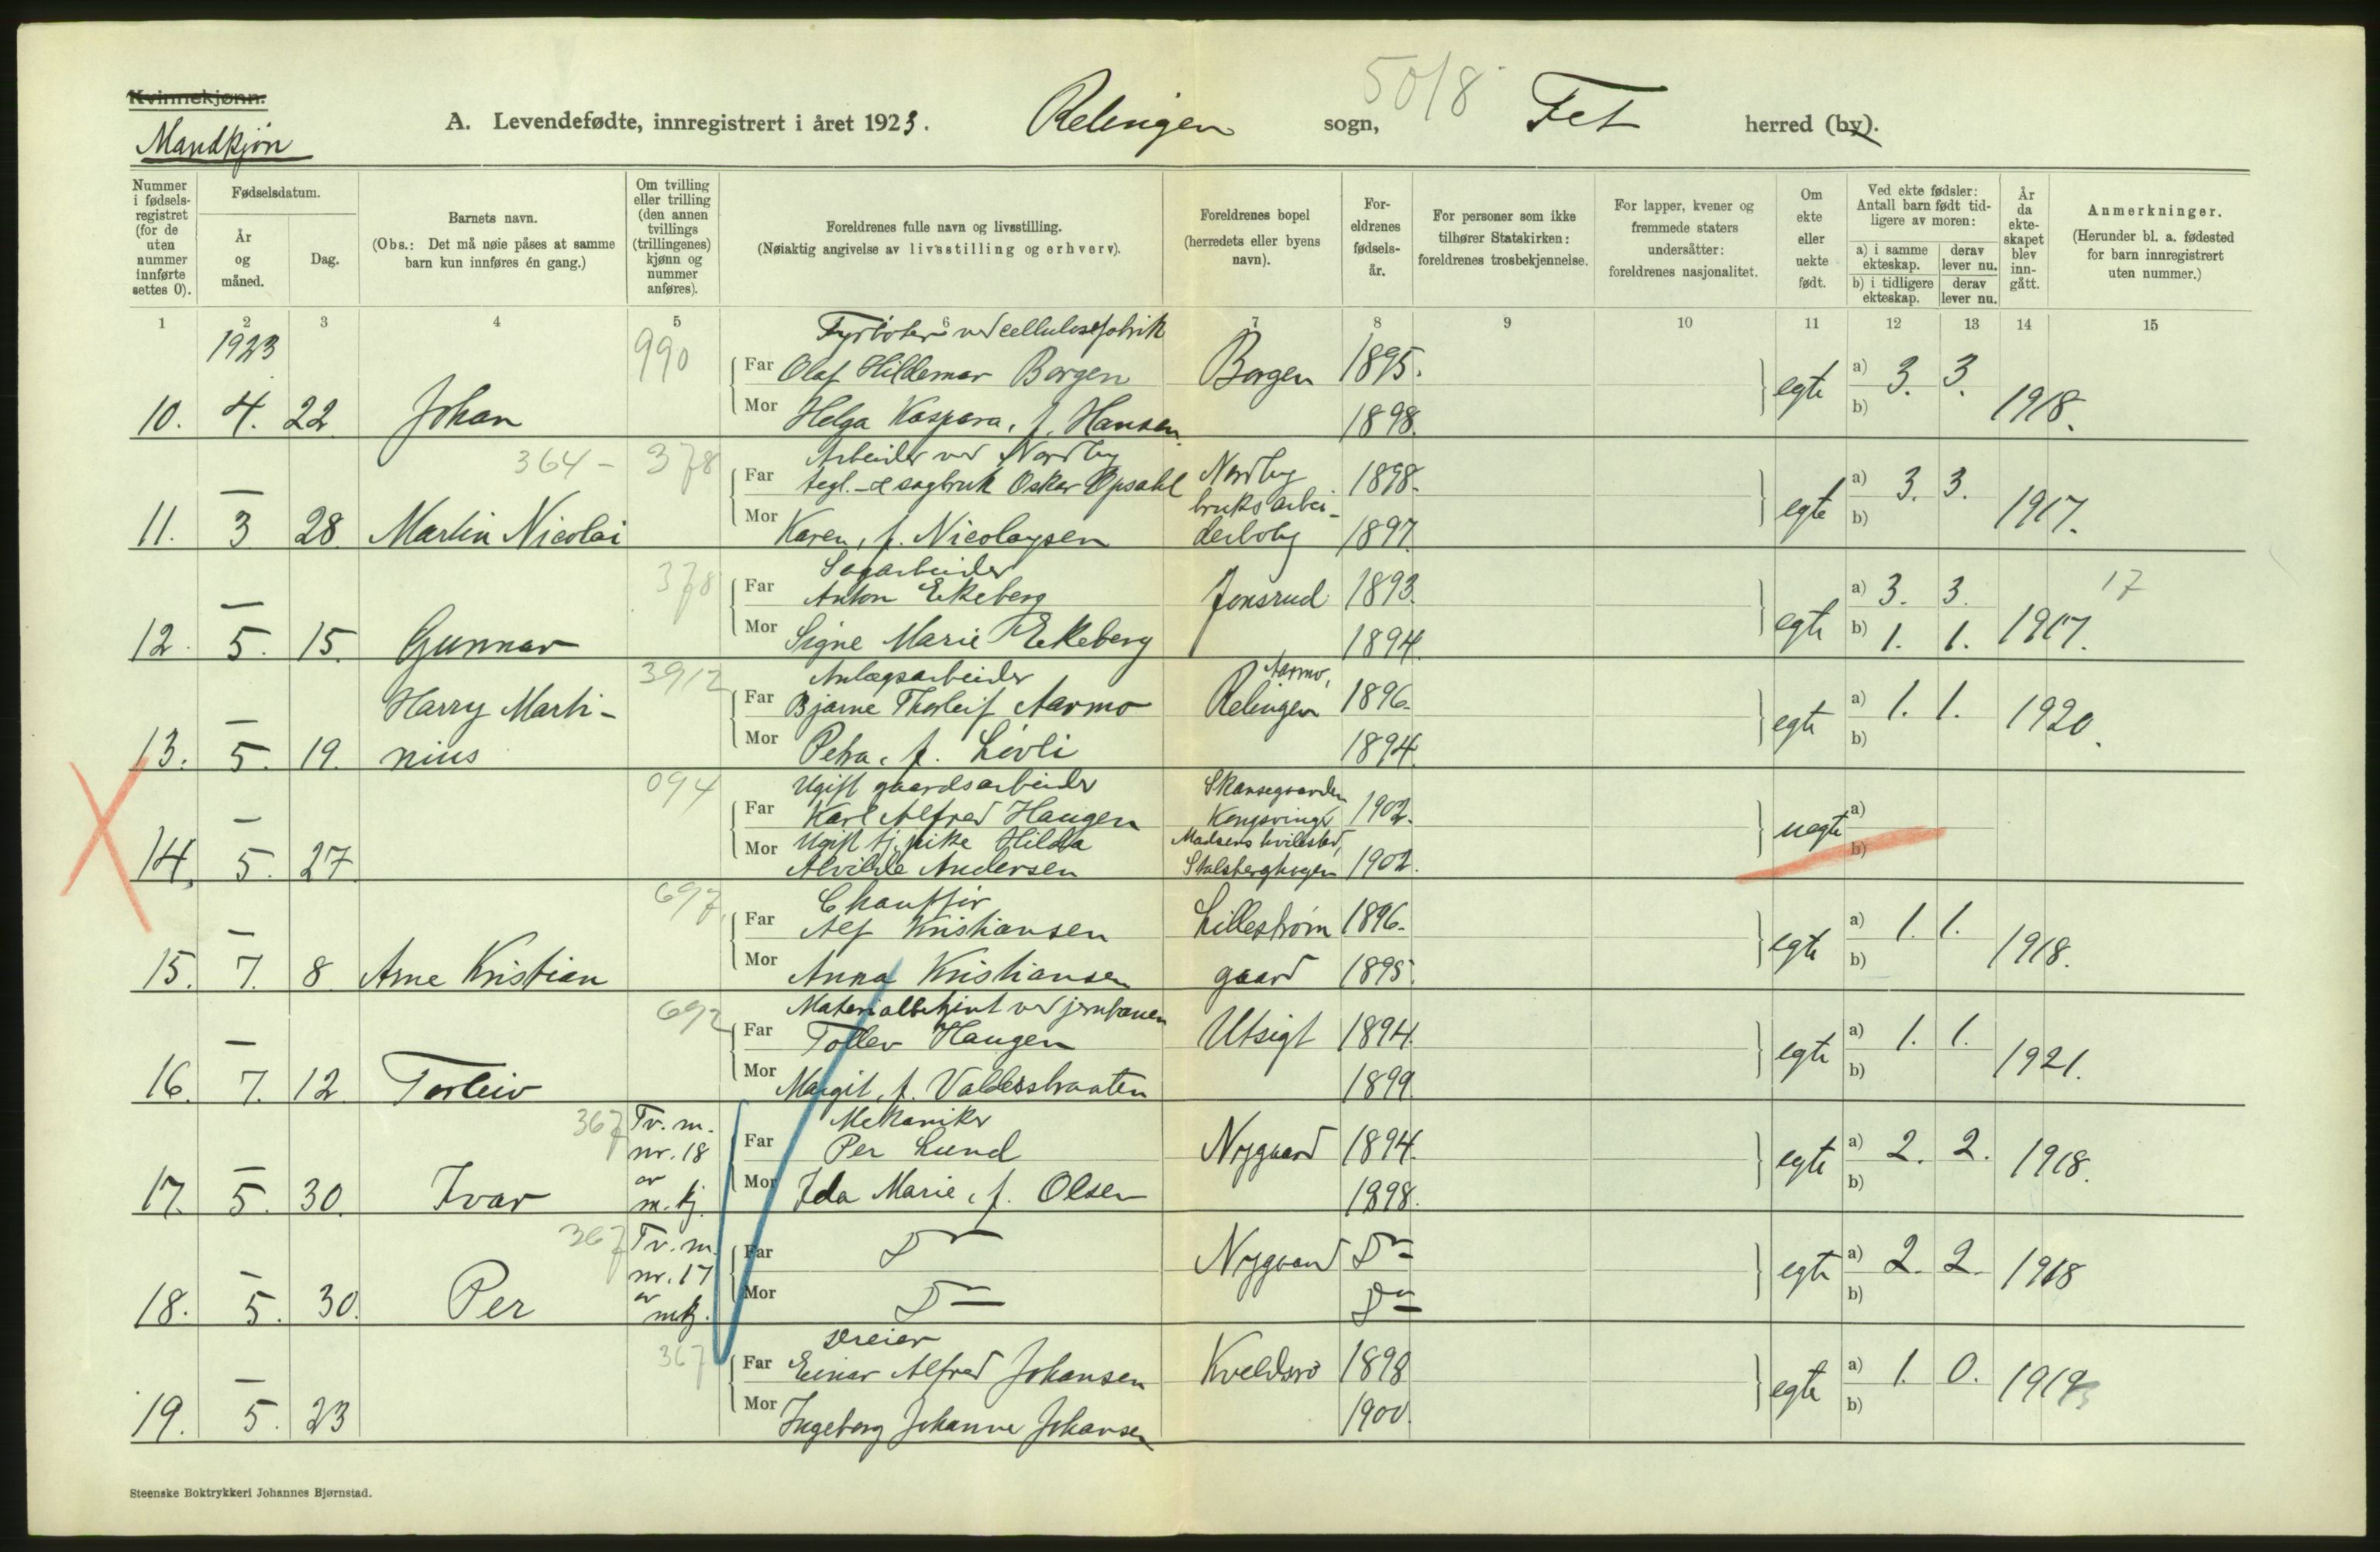 Kvinnekjønn.
Mandkjøn
A. Levendefødte, innregistrert i året 1923. Relingen sogn, 50/8 Fet herred (by).
Nummer i fødsels-registret (for de uten nummer innførte settes 0).
Fødselsdatum.
År og måned.
Dag.
Barnets navn.
(Obs.: Det må nøie påses at samme barn kun innføres én gang.)
Om tvilling eller trilling (den annen tvillings (trillingenes) kjønn og nummer anføres).
Foreldrenes fulle navn og livsstilling.
(Nøiaktig angivelse av livsstilling og erhverv).
Foreldrenes bopel (herredets eller byens navn).
For-eldrenes fødsels-år.
For personer som ikke tilhører Statskirken: foreldrenes trosbekjennelse.
For lapper, kvener og fremmede staters undersåtter: foreldrenes nasjonalitet.
Om ekte eller uekte født.
Ved ekte fødsler: Antall barn født tid-ligere av moren:
a) i samme ekteskap.
derav lever nu.
b) i tidligere ekteskap.
derav lever nu.
År da ekte-skapet blev inn-gått.
Anmerkninger.
(Herunder bl. a. fødested for barn innregistrert uten nummer.)
1 2 3 4 5 6 7 8 9 10 11 12 13 14 15
1923
990
Fyrbøter ved cellulosefabrik
Far Olaf Hildemar Borgen Borgen 1895.
10. 4. 22 Johan Mor Helga Kaspara, f. Hansen. 1898. egte a) 3. 3. b) 1918.
364 - 378
Arbeider ved Nordby
Far tegl.- & sagbruk Oskar Opsahl Nordby bruks arbei- 1898.
11. — 3 28 Martin Nicolai Mor Karen, f. Nicolaysen derbolig 1897. egte a) 3. 3. b) 1917.
378
Sagarbeider
Far Anton Ekeberg Jonsrud 1893. 17
12. — 5. 15. Gunnar Mor Signe Marie Ekeberg 1894. egte a) 3. 3. b) 1. 1. 1917.
3912
Anlægsarbeider Aarmo,
Harry Marti- Far Bjarne Thorleif Aarmo Relingen 1896.
13. — 5. 19. nius Mor Petra, f. Lövli 1894. egte a) 1. 1. b) 1920.
094
Ugift gaardsarbeider Skansegaarden
Far Karl Alfred Haugen Kongsvinger 1902.
Mor Ugift tj. pike Hilda Madsens hvilested,
14, — 5. 27. Alvilde Andersen Stalsberghagen 1902. uegte a) b)
697
Chauffør
Far Alf Kristiansen Lillestrøm 1896.
15. — 7. 8 Arne Kristian Mor Anna Kristiansen gaard 1895. egte a) 1. 1. b) 1918.
692
Materialbetjent ved jernbanen
Far Tollev Haugen Utsigt 1894.
16. — 7. 12 Torleiv Mor Margit, f. Valderstraaten 1899. egte a) 1. 1. b) 1921.
367 Tv. m. Mekaniker
nr. 18 Far Per Lund Nygaard 1894.
17. — 5. 30. Ivar av m. kj. Mor Ida Marie, f. Olsen 1898. egte a) 2. 2. b) 1918.
367 Tv. m.
nr. 17 Far Do — Nygaard Do —
18. — 5. 30. Per av mkj. Mor Do — Do — egte a) 2. 2. b) 1918
367
Dreier
Far Einar Alfred Johansen Kveldsro 1898
19. — 5. 23 Mor Ingeborg Johanne Johansen 1900. egte a) 1. 0. b) 1919
Steenske Boktrykkeri Johannes Bjørnstad.